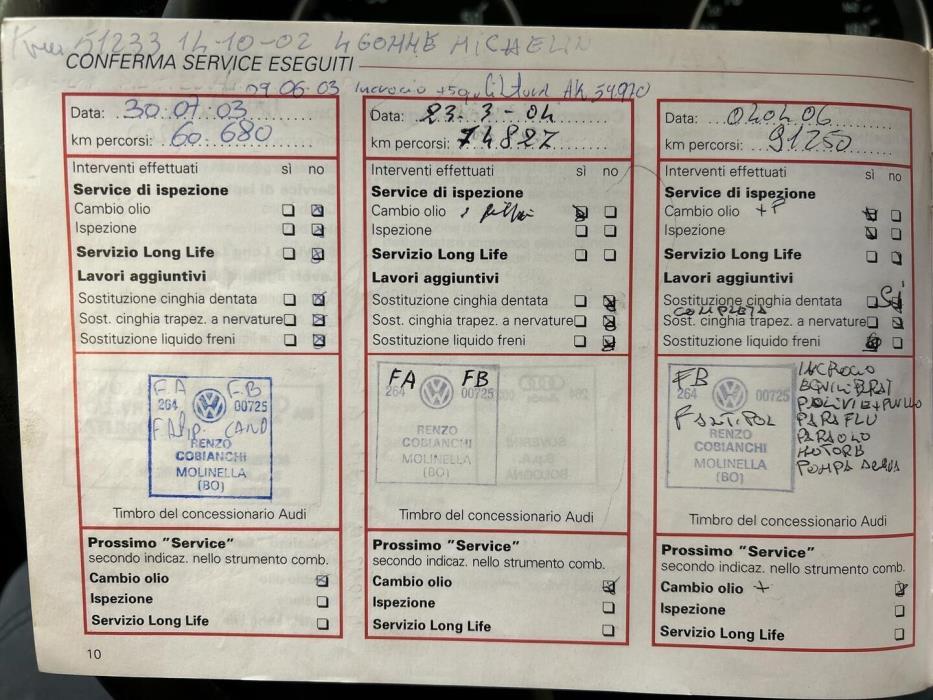 Km 51233 14-10-02 4 GOMME MICHAELIN
CONFERMA SERVICE ESEGUITI
09.06.03 Incrocio +Eq. 54.970
Data: 30.07.03
km percorsi: 60.680
Interventi effettuati sì no
Service di ispezione
Cambio olio
Ispezione
Servizio Long Life
Lavori aggiuntivi
Sostituzione cinghia dentata
Sost. cinghia trapez. a nervature
Sostituzione liquido freni
FA FB
264 00725
RENZO
COBIANCHI
MOLINELLA
(BO)
Timbro del concessionario Audi
Prossimo "Service"
secondo indicaz. nello strumento comb.
Cambio olio
Ispezione
Servizio Long Life
Data: 23-3-04
km percorsi: 74827
Interventi effettuati sì no
Service di ispezione
Cambio olio
Ispezione
Servizio Long Life
Lavori aggiuntivi
Sostituzione cinghia dentata
Sost. cinghia trapez. a nervature
Sostituzione liquido freni
FA FB
264 00725
RENZO
COBIANCHI
MOLINELLA
(BO)
Timbro del concessionario Audi
Prossimo "Service"
secondo indicaz. nello strumento comb.
Cambio olio
Ispezione
Servizio Long Life
Data: 040406
km percorsi: 91250
Interventi effettuati sì no
Service di ispezione
Cambio olio +F
Ispezione
Servizio Long Life
Lavori aggiuntivi
Sostituzione cinghia dentata Sì
COMPLETA
Sost. cinghia trapez. a nervature
Sostituzione liquido freni
FB
264 00725
F ANTIPOL
RENZO
COBIANCHI
MOLINELLA
(BO)
INCROCIO
EQUILIBRAT
PARAFLU
PARAOLIO
MOTORE
POMPA ACQUA
Timbro del concessionario Audi
Prossimo "Service"
secondo indicaz. nello strumento comb.
Cambio olio +
Ispezione
Servizio Long Life
10